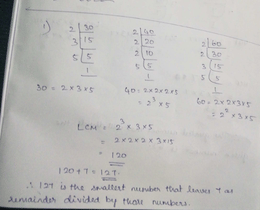 1)
2 | 30
3 | 15
5 | 5
1
2 | 40
2 | 20
2 | 10
5 | 5
1
2 | 60
2 | 30
3 | 15
5 | 5
1
30 = 2×3×5
40 = 2×2×2×5
= 2³×5
60 = 2×2×3×5
= 2²×3×5
LCM = 2³×3×5
= 2×2×2×3×5
= 120
120+7 = 127
∴ 127 is the smallest number that leaves 7 as
remainder divided by those numbers.